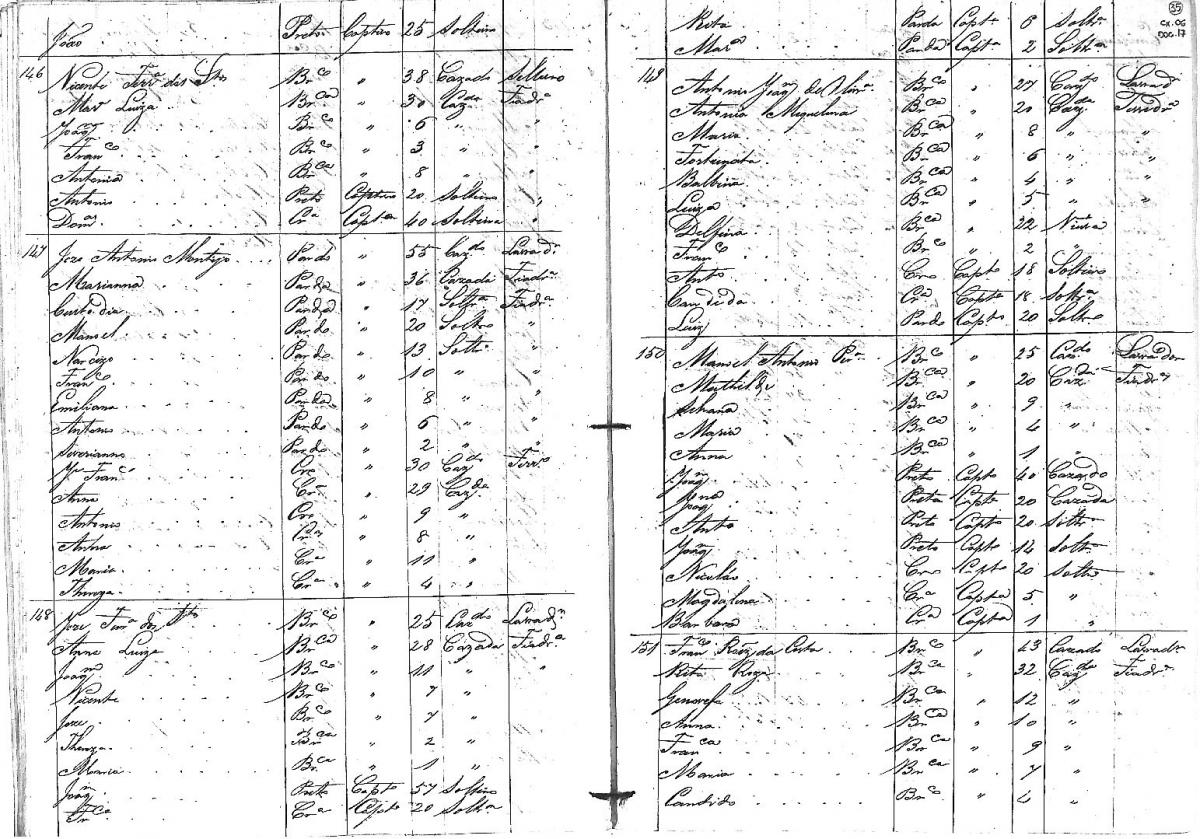 João Preto Captivo 25 Solteiro
146 Vicente Ferr.ª dos S.tos Br.co " 38 Cazado Selleiro
Mar.ª Luiza Br.ca " 30 Caz.da Fiadr.ª
Joaq.m Br.co " 6 " "
Fran.co Br.co " 3 " "
Antonia Br.ca " 8 " "
Antonio Preto Captivo 20 Solteiro "
Dom.as Cr.ª Capt.ª 40 Solteira "
147 Joze Antonio Pardo " 55 Caz.do Lavrad.r
Marianna Parda " 36 Cazada Fiadr.ª
Custodia Parda " 17 Soltr.ª Fiadr.ª
Manoel Pardo " 20 Soltro "
Narcizo Pardo " 13 Soltr.º "
Fran.co Pardo " 10 " "
Emiliana Parda " 8 " "
Antonio Pardo " 6 " "
Severianno Pardo " 2 " "
Fran.co Cro " 30 Caz.do Ferr.º
Anna Cr.ª " 29 Caz.da
Antonio Cro " 9 "
Anna Cr.ª " 8 "
Maria Cr.ª " 11 "
Thereza Cr.ª " 4 "
148 Joze Ferr.ª dos S.tos Br.co " 25 Caz.do Lavrad.r
Anna Luiza Br.ca " 28 Cazada Fiadr.ª
Joaq.m Br.co " 11 " "
Vicente Br.co " 7 "
Joze Br.co " 7 "
Thereza Br.ca " 2 "
Maria Br.ca " 1 "
Joaq.m Preto Capto 57 Solteiro
Fr.ca Cr.ª Capt.ª 20 Soltr.ª
35
CX.06
DOC.17
Rita Parda Capt.ª 6 Soltr.ª
Mar.ª Parda Capt.ª 2 Soltr.ª
149 Antonio Joaq.m de Olivr.ª Br.co " 27 Caz.do Lavrad.r
Antonia Miquelina Br.ca " 20 Caz.da Fiadr.ª
Maria Br.ca " 8 " "
Fortunata Br.ca " 6 " "
Balbina Br.ca " 4 " "
Luiza Br.ca " 5 " "
Delfina Br.ca " 22 Viuva
Fran.co Br.co " 2 "
Anto Cro Capto 18 Solteiro
Candida Cr.ª Capt.ª 18 Soltr.ª
Luiz Pardo Capto 20 Soltro
150 Manoel Antonio Per.ª Br.co " 25 Caz.do Lavrador
Mathilde Br.ca " 20 Caz.da Fiadr.ª
Silvana Br.ca " 9 "
Maria Br.ca " 4 "
Anna Br.ca " 1 "
Joaq.m Preto Capto 40 Cazado
Joaq.na Preta Capt.ª 20 Cazada
Anto Preto Capto 20 Soltr.º
Joaq.m Preto Capto 14 Soltr.º
Nicoláo Cro Capto 20 Soltro
Magdalena Cr.ª Capta 5 "
Barbara Cr.ª Capta 1 "
151 Fran.co Roiz da Costa Br.co " 43 Cazado Lavradr
Rita Roza Br.ca " 32 Caz.da Fiadr.ª
Genovefa Br.ca " 12 "
Anna Br.ca " 10 "
Fran.ca Br.ca " 9 "
Maria Br.ca " 7 "
Candido Br.co " 4 "